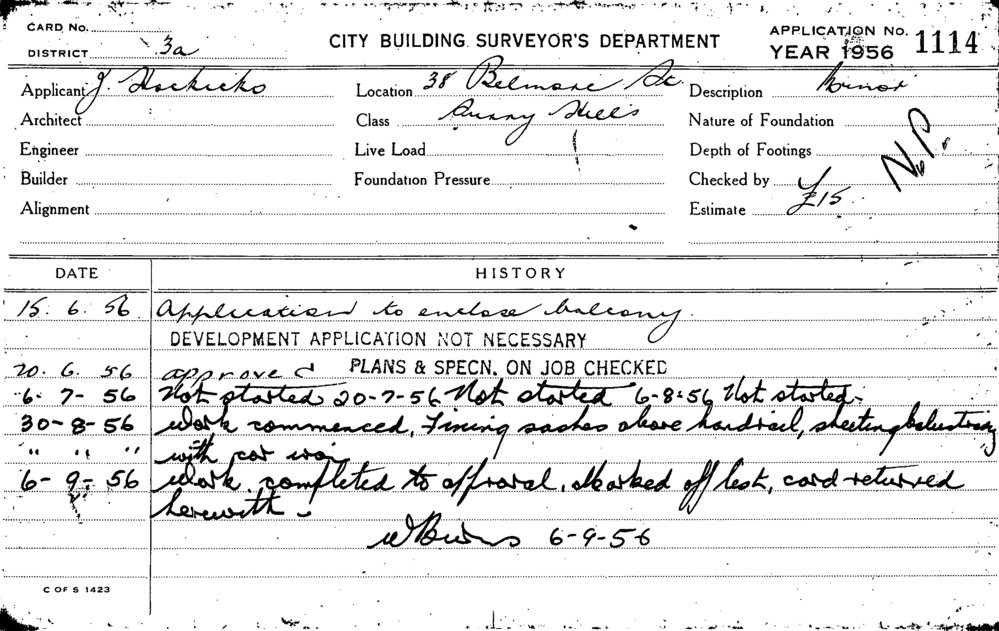 CARD No.
DISTRICT 3a
CITY BUILDING SURVEYOR'S DEPARTMENT
APPLICATION No. 1114
YEAR 1956
Applicant J. Location 38 Belmore St. Description Minor
Architect Class Surry Hills Nature of Foundation
Engineer Live Load Depth of Footings N.P.
Builder Foundation Pressure Checked by
Alignment Estimate £15
DATE HISTORY
15. 6. 56 Application to enclose balcony.
DEVELOPMENT APPLICATION NOT NECESSARY
20. 6. 56 approved PLANS & SPECN. ON JOB CHECKED
6- 7- 56 Not started 20-7-56 Not started 6-8-56 Not started.
30-8-56 Work commenced, Fixing sashes above handrail, sheeting balustrading
" " " with cor iron
6- 9- 56 Work completed to approval, Marked off list, card returned
herewith.
6-9-56
C OF S 1423